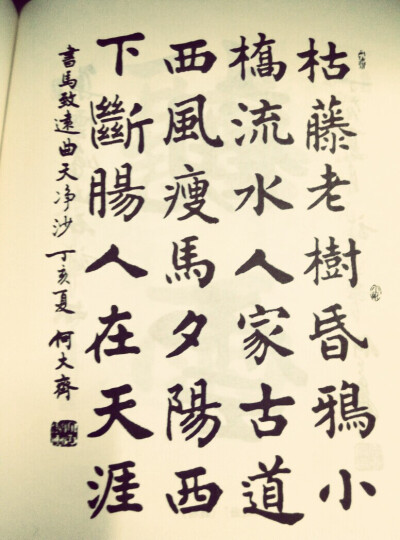 枯藤老樹昏鴉小
橋流水人家古道
西風瘦馬夕陽西
下斷腸人在天涯
書馬致遠曲天净沙丁亥夏何大齊